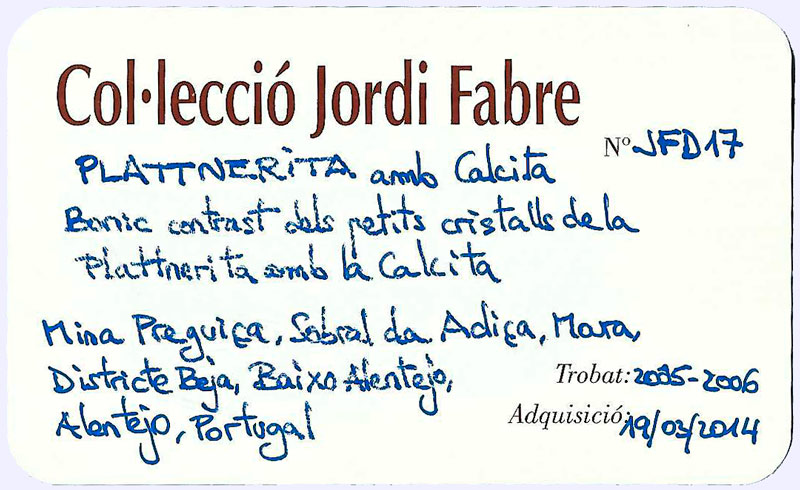 Col·lecció Jordi Fabre
Nº JFD17
PLATTNERITA amb Calcita
Bonic contrast dels petits cristalls de la
Plattnerita amb la Calcita
Mina Preguiça, Sobral da Adiça, Mora,
Districte Beja, Baixo Alentejo,
Alentejo, Portugal
Trobat: 2005-2006
Adquisició: 19/03/2014